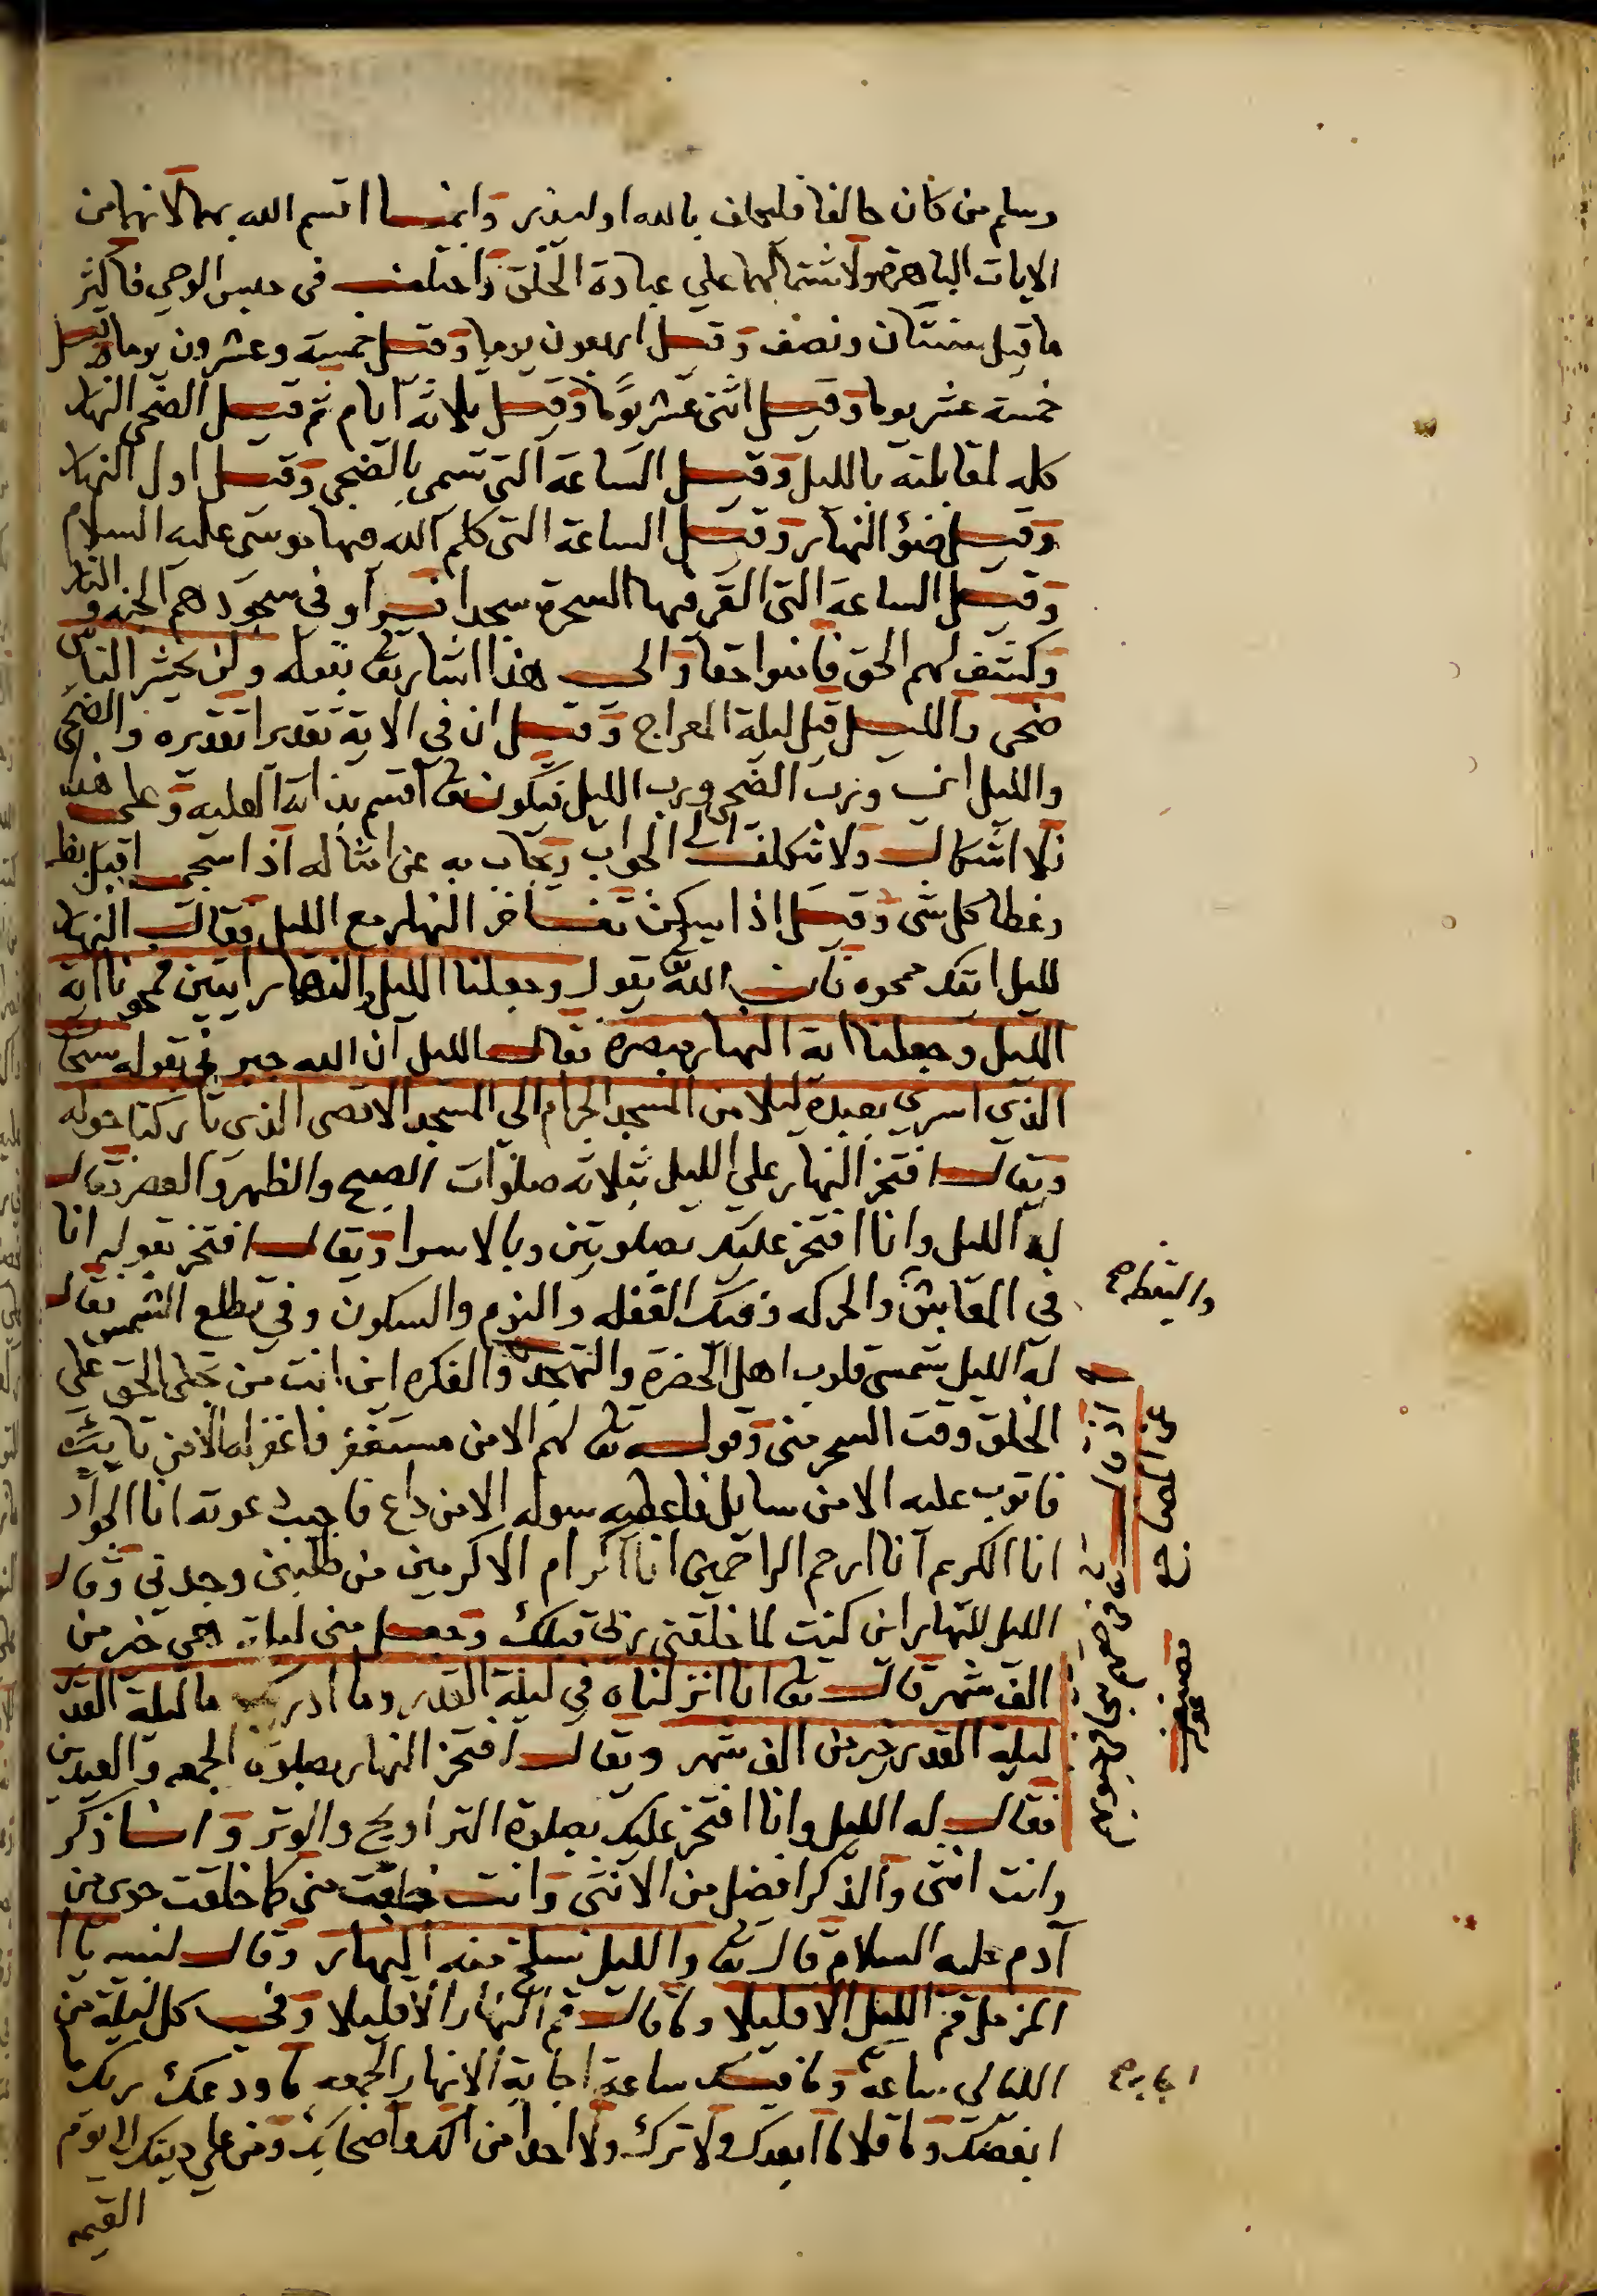 وسلم من كان حالفا فليحلف بالله او ليذر وانما اقسم الله بهما لانهما من
الايات الباهرة ولاشتمالهما علي عبادة الخلق واختلف في حبس الوحي فاكثر
ما قيل سنتان ونصف وقيل اربعون يوما وقيل خمسة وعشرون يوما وقيل
خمسة عشر يوما وقيل اثنى عشر يوما وقيل ثلاثة ايام ثم قيل الضحى النهار
كله لمقابلته بالليل وقيل الساعة التي تسمى بالضحى وقيل اول النهار
وقيل ضؤ النهار وقيل الساعة التي كلم الله فيها موسى عليه السلام
وقيل الساعة التي القى فيها السحرة سجدا فسراو في سجودهم الجنه والنار
وكشف لهم الحق فامنوا حقا والى هذا اشار تع بقوله وان يحشر الناس
ضحى والليل قيل ليلة المعراج وقيل ان في الاية تقديرا تقديره والضحى
والليل اي ورب الضحى ورب الليل فيكون تع اقسم بذاته العليه وعلى هذه
فلا اشكال ولا تكلف الى الجواب ويجاب به عن امثاله اذا سجى اقبل بظـ
وغطا كل شى وقيل اذا سكن تفاخر النهار مع الليل فقال النهار
لليل ايتك ممحوه فان الله يقول وجعلنا الليل والنهار ايتين فمحونا اية
الليل وجعلنا اية النهار مبصرة فقال الليل ان الله خبر في بقوله سبحا
الذي اسرى بعبده ليلا من المسجد الحرام الى المسجد الاقصى الذي باركنا حوله
ويقال افتخر النهار على الليل بثلاثة صلوات الصبح والظهر والعصر فقال
له الليل وانا افتخر عليك بصلوتين وبالاسرا ويقال افتخر بقوليه انا
في المعايش والحركه وفيك الغفله والنوم والسكون وفي تطلع الشمس فقال
والتيقظ صح
له الليل شمسى قلوب اهل الحضرة والتهجد والفكره اين انت من تجلى الحق على
الخلق وقت السحر منى وقوله تع لهم الا من مستغفر فاغفر له الا من تايب
فاتوب عليه الا من سايل فاعطيه سوله الا من داع فاجيب دعوته انا الجواد
انا الكريم انا ارحم الراحمين انا اكرام الاكرمين من طلبنى وجدنى وقال
الليل للنهار اين كنت لما خلقنى ربى قبلك وجعل منى ليلة هي خير من
الف شهر قال تع انا انزلناه في ليلة القدر وما ادريك ما ليلة القدر
ليلة القدر خير من الف شهر ويقال افتخر النهار بصلوة الجمعه والعيدين
فقال له الليل وانا افتخر عليك بصلوة التراويح والوتر وانا ذكر
وانت انثى والذكر افضل من الانثى وانت خلقت منى كما خلقت حوى من
آدم عليه السلام قال تع والليل نسلخ منه النهار وقال لنبيه يا ا
المزمل قم الليل الا قليلا وما قال قم النهار الا قليلا وفي كل ليلة من
الليالى ساعة وما فيك ساعة اجابة الا نهار الجمعه ما ودعك ربك ما
اجابة صح
ابغضك وما قلا ما ابعدك ولا تركك ولا احدا من الك واصحابك ومن على دينك الا يوم
القيمه